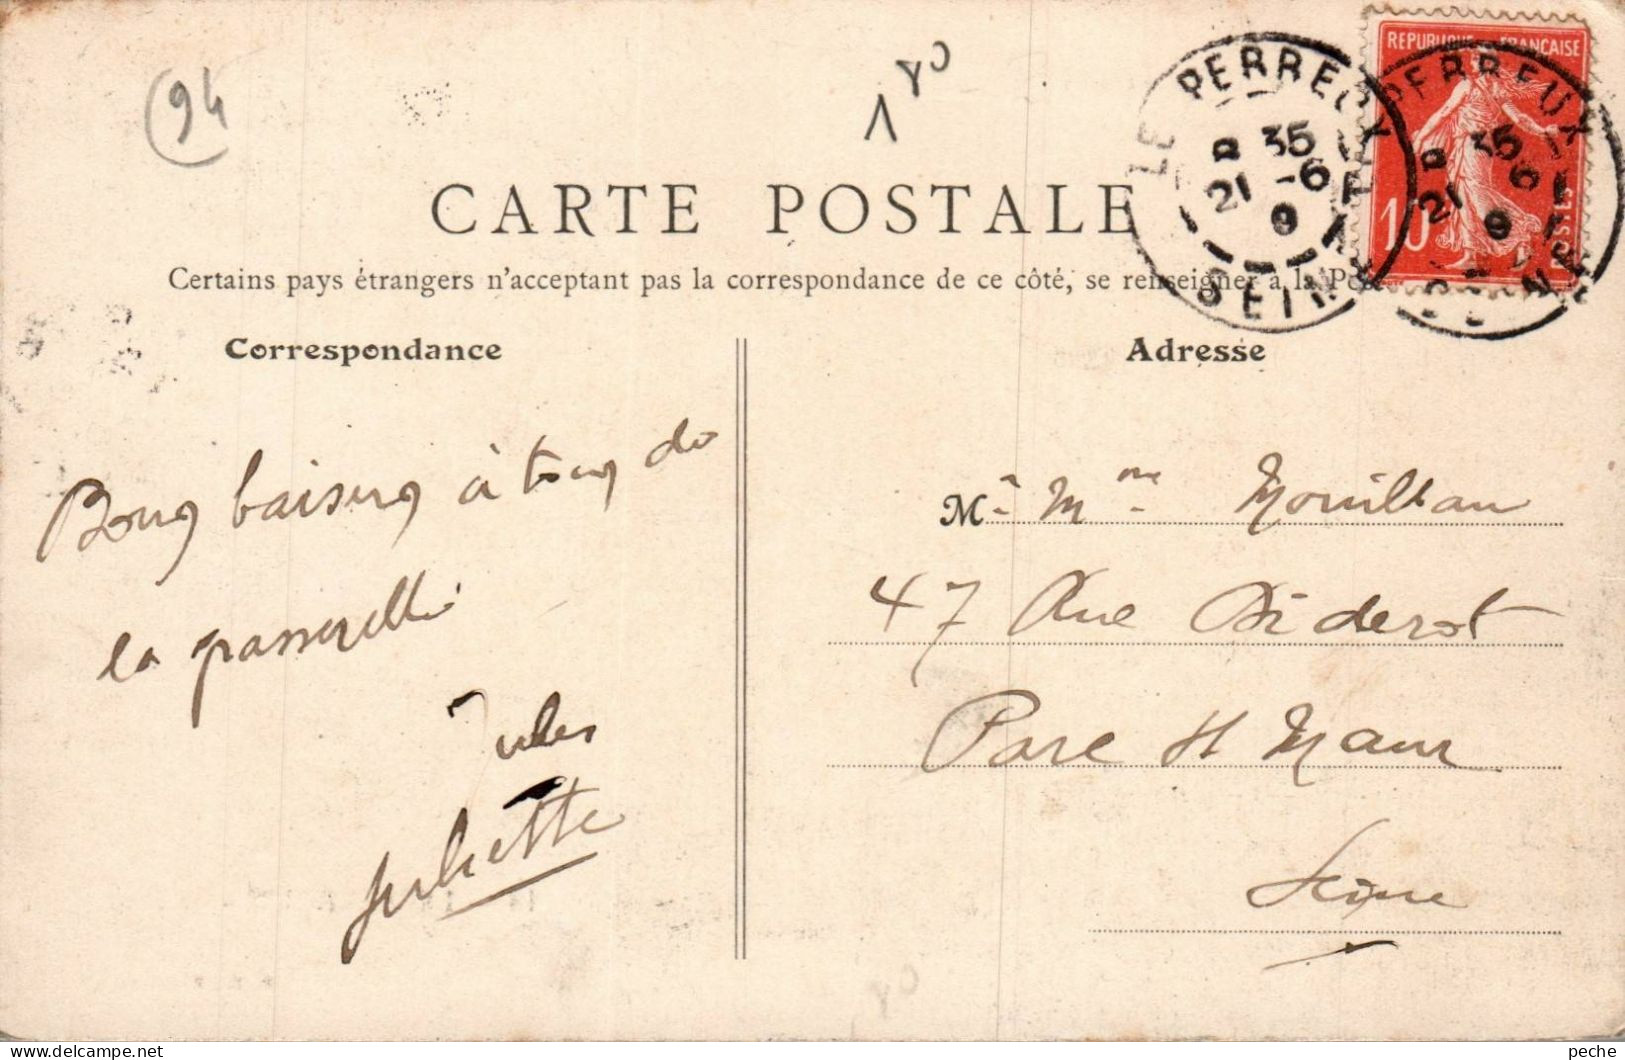 94
1 80
REPUBLIQUE FRANÇAISE
10
POSTES
LE PERREUX
8 35
21 -6
9
SEINE
LE PERREUX
8 35
21 6
9
SEINE
CARTE POSTALE
Certains pays étrangers n'acceptant pas la correspondance de ce côté, se renseigner à la Poste
Correspondance
Adresse
Bons baisers à tous de
la passerelle
Jules
Juliette
Mr Mme Mouillan
47 Rue Diderot
Parc St Maur
Seine
peche